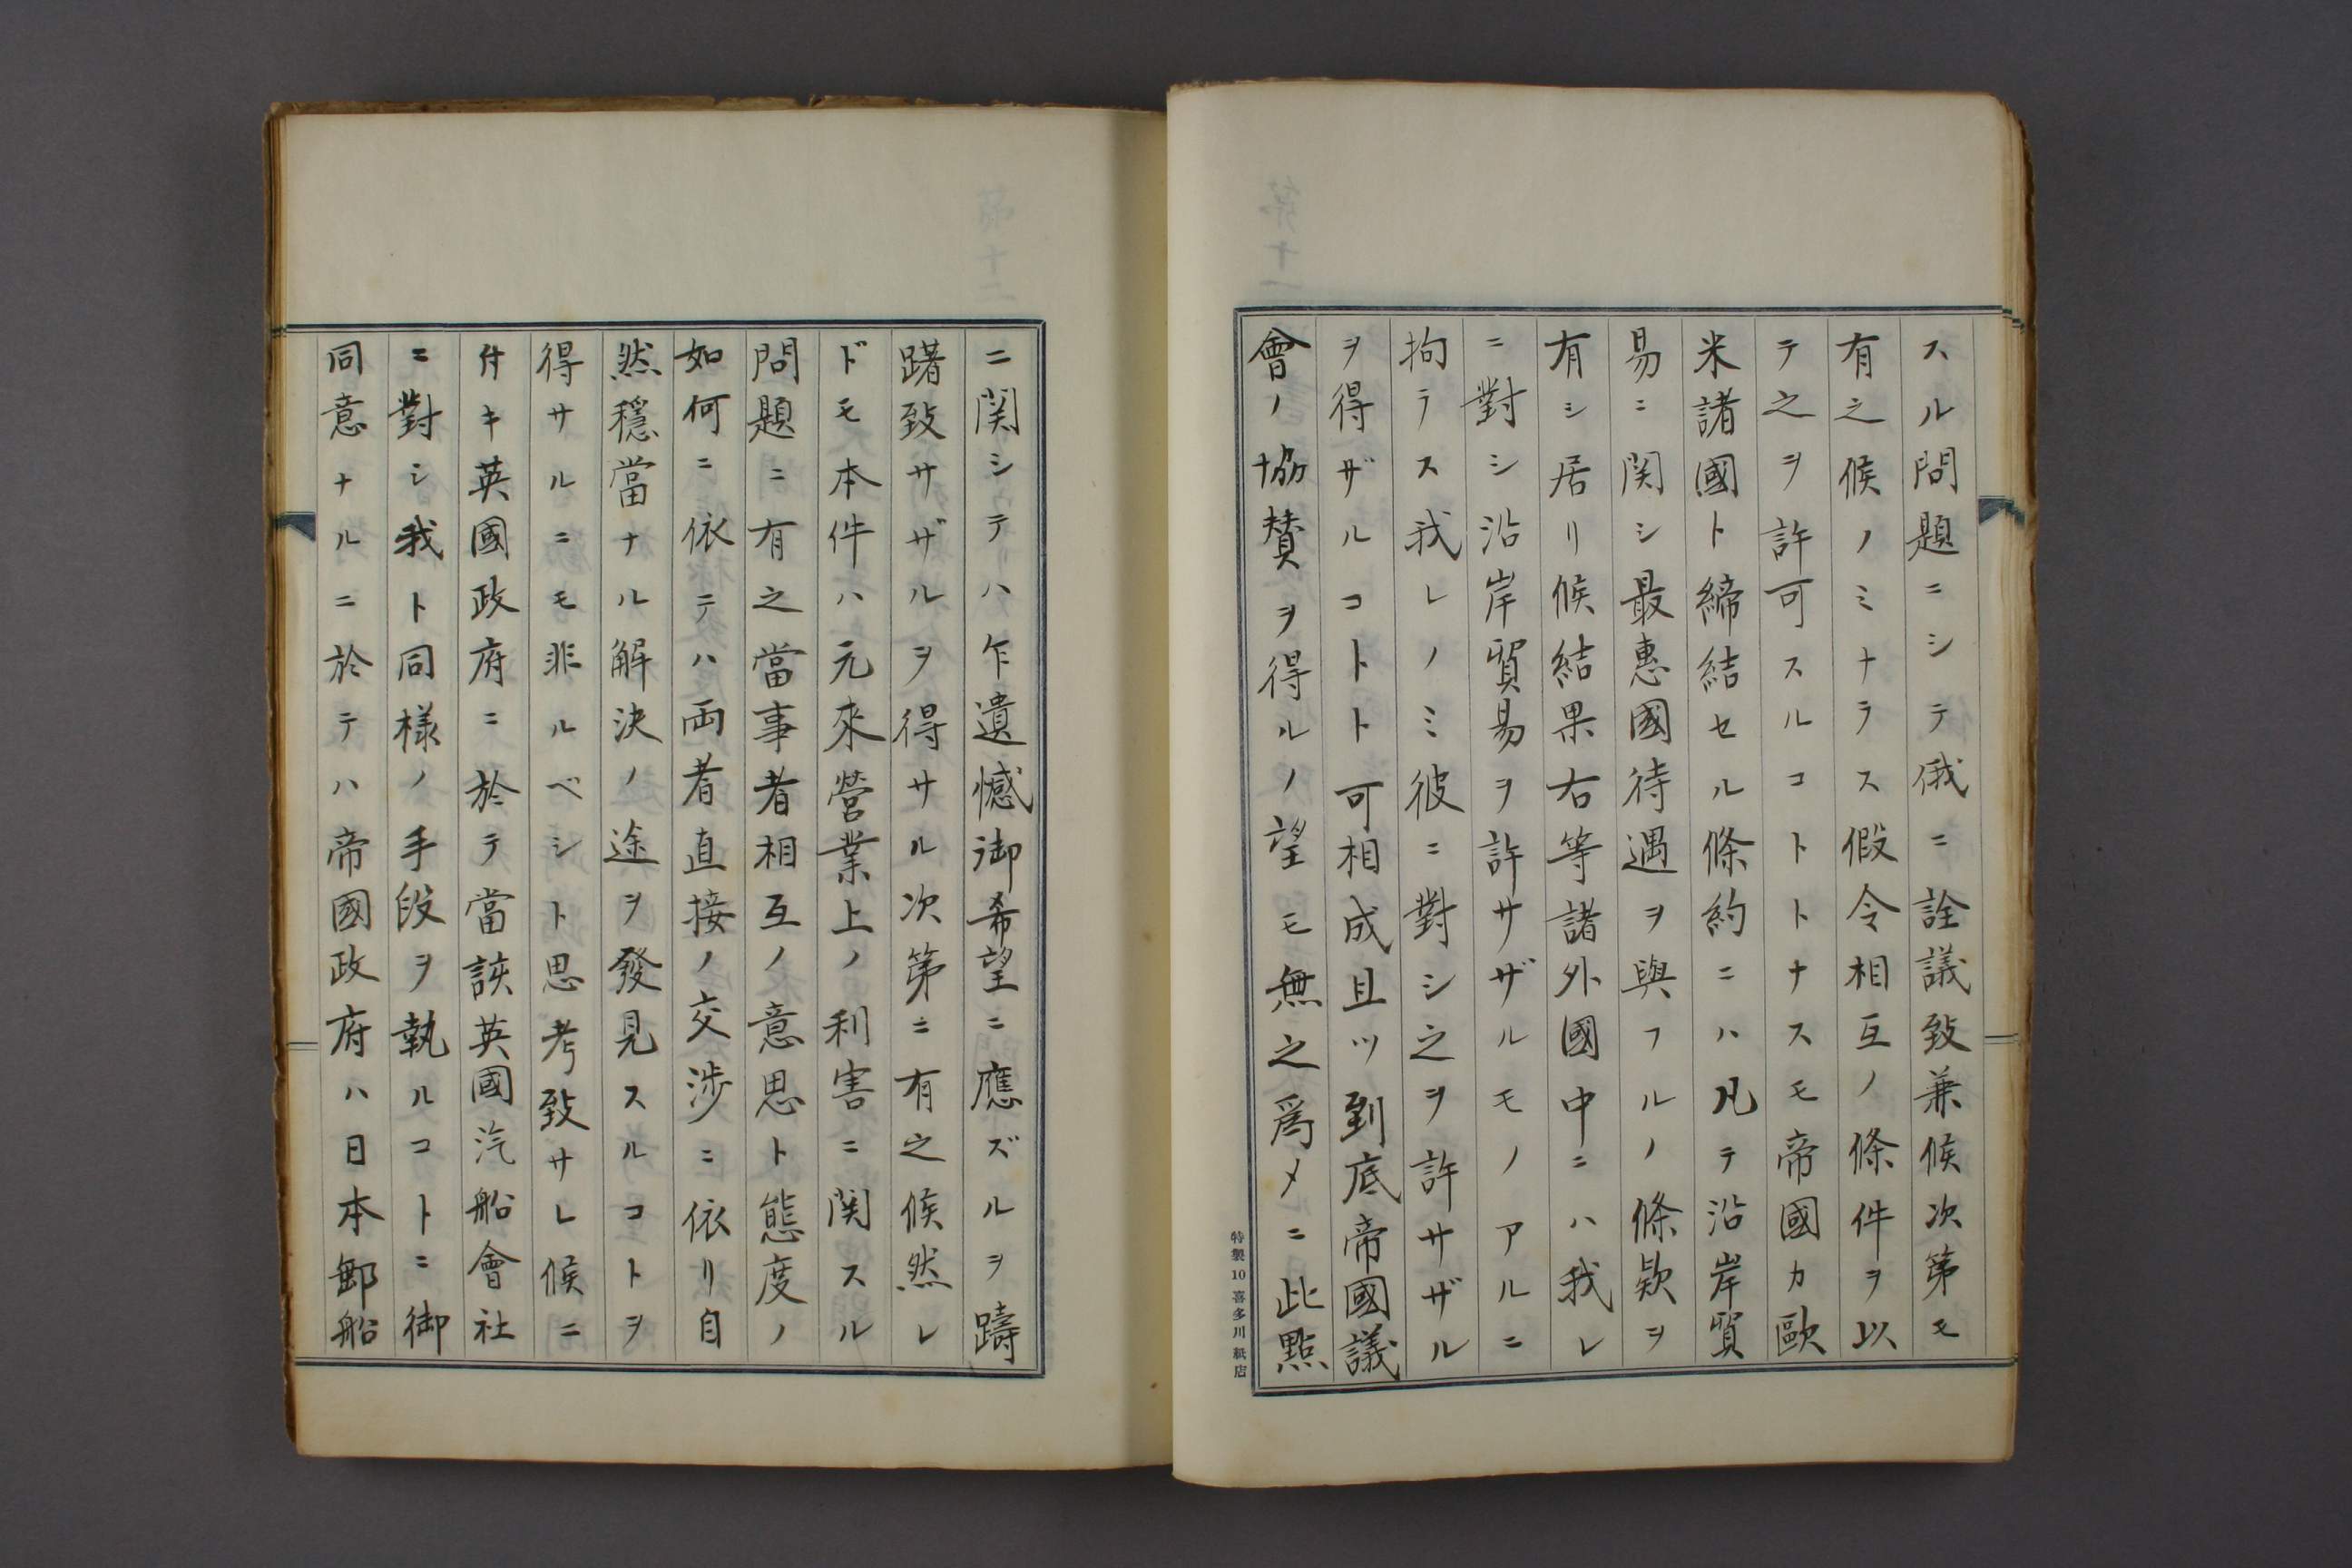 スル問題ニシテ俄ニ詮議致兼候次第モ
有之候ノミナラス假令相互ノ條件ヲ以
テ之ヲ許可スルコトトナスモ帝國カ歐
米諸國ト締結セル條約ニハ凡テ沿岸貿
易ニ関シ最惠國待遇ヲ與フルノ條欵ヲ
有シ居リ候結果右等諸外國中ニハ我レ
ニ對シ沿岸貿易ヲ許サザルモノアルニ
拘ラス我レノミ彼ニ對シ之ヲ許サザル
ヲ得ザルコトト可相成且ツ到底帝國議
會ノ協賛ヲ得ルノ望モ無之爲メニ此點
特製10喜多川紙店
ニ関シテハ乍遺憾御希望ニ應ズルヲ躊
躇致サザルヲ得サル次第ニ有之候然レ
ドモ本件ハ元來營業上ノ利害ニ関スル
問題ニ有之當事者相互ノ意思ト態度ノ
如何ニ依テハ両者直接ノ交渉ニ依リ自
然穩當ナル解決ノ途ヲ發見スルコトヲ
得サルニモ非ルベシト思考致サレ候ニ
付キ英國政府ニ於テ當該英國汽船會社
ニ對シ我ト同様ノ手段ヲ執ルコトニ御
同意ナルニ於テハ帝國政府ハ日本郵船